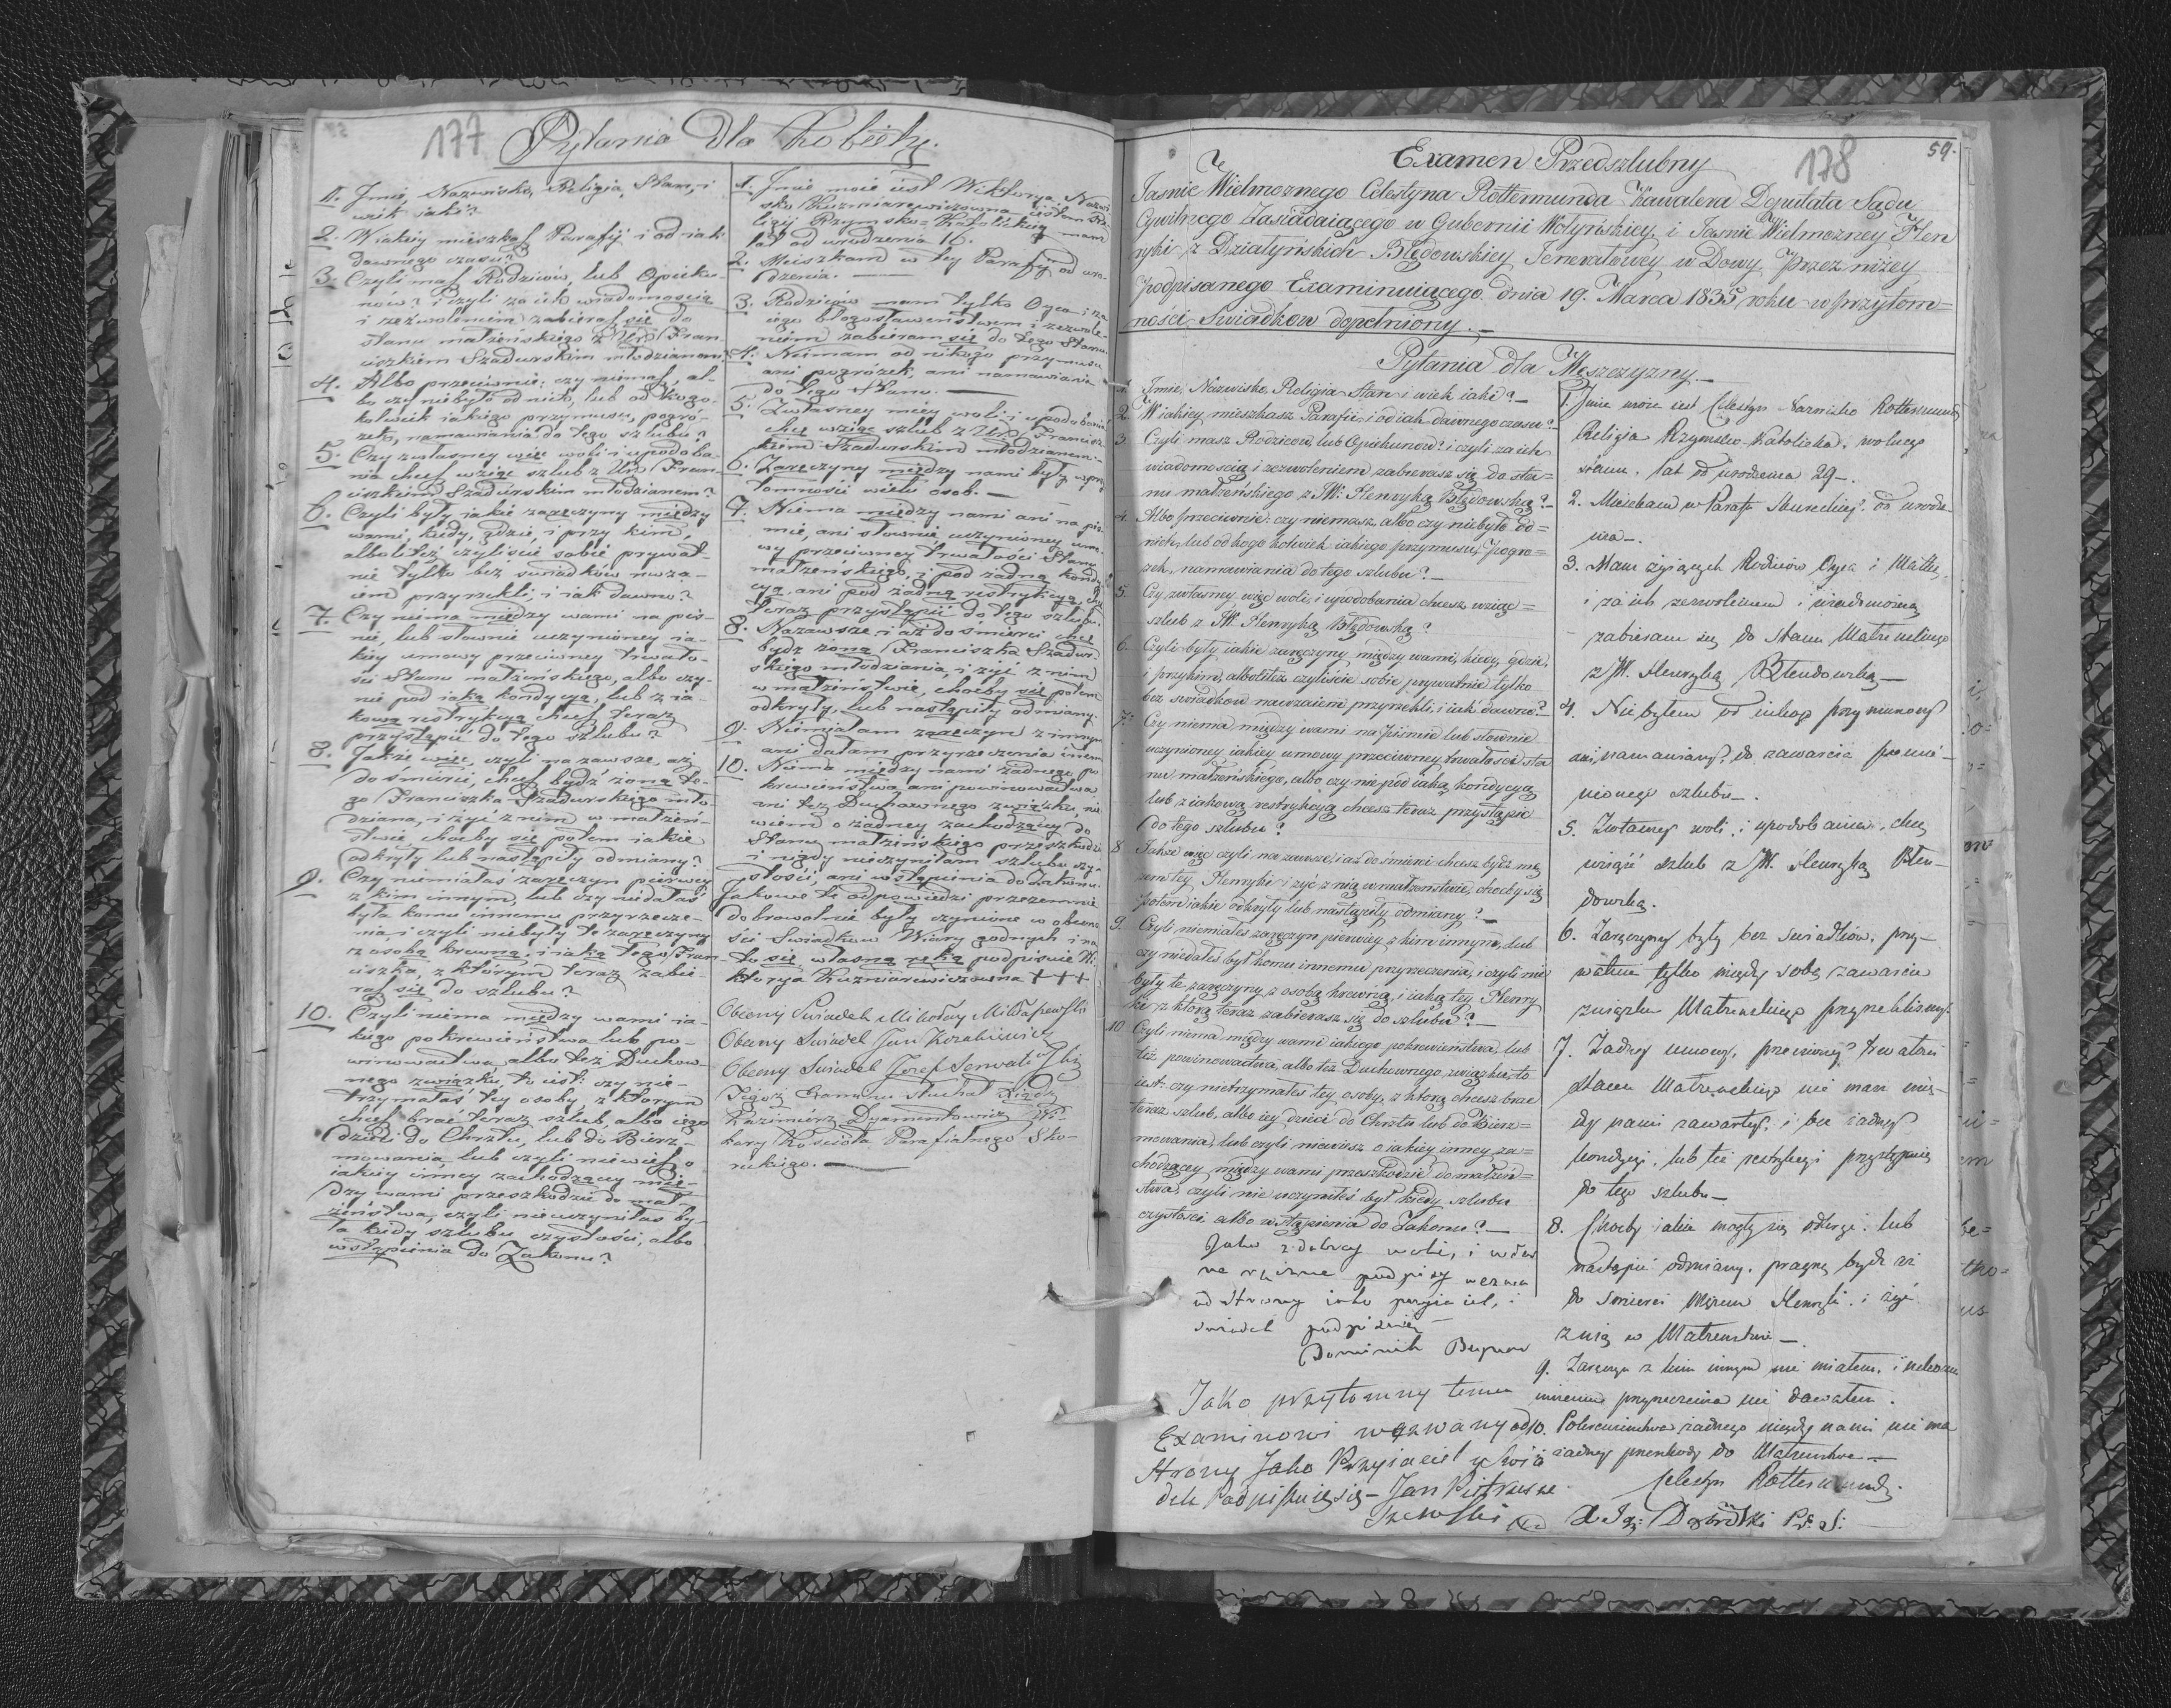 177
Pytania Dla Kobiety.
1. Jmie, Nazwisko, Religia, Stan, i
wiek jaki?
2. W iakiey mieszkasz Parafij i od iak
dawnego czasu?
3. Czyli masz Rodziców, lub Opieku-
nów? i czyli za ich wiadomością
i zezwoleniem zabierasz się do
stanu małżeńskiego z Ur: Fran-
ciszkiem Szadurskim młodzianem?
4. Albo przeciwnie: czy niemasz, al-
bo czy niebyło od nich, lub od kogo-
kolwiek iakiego przymusu, pogró-
żek, namawiania do tego szlubu?
5. Czy z własney więc woli i upodoba-
nia chcesz wziąć szlub z Ur: Fran-
ciszkiem Szadurskim młodzianem?
6. Czyli były iakie zaręczyny między
wami, kiedy, gdzie, i przy kim,
albo li też czyliście sobie prywat-
nie tylko bez swiadków nawza-
iem przyrzekli, i iak dawno?
7. Czy niema między wami na piś-
mie, lub słownie uczynioney ia-
kiey umowy przeciwney trwało-
ści Stanu małżeńskiego, albo czy
nie pod iaką kondycyą, lub z ia-
kową restrykcyą chcesz teraz
przystąpić do tego szlubu?
8. Jakże więc, czyli na zawsze, aż
do śmierci, chcesz bydź żoną te-
go Franciszka Szadurskiego mło-
dziana, i żyć z nim w małżeń-
stwie, choćby się potem iakie
odkryły lub nastąpiły odmiany?
9. Czy niemiałaś zaręczyn pierwey
z kim innym, lub czy niedałaś
była komu innemu przyrzecze-
nia, i czyli niebyły te zaręczyny
z osobą krewną, i iaką tego Fran-
ciszka, z którym teraz zabie-
rasz się do szlubu?
10. Czyli niema między wami ia-
kiego pokrewieństwa lub po-
winowactwa, albo też Duchow-
nego związku, to iest: czy nie-
trzymałaś tey osoby, z którym
chcesz brać teraz szlub, albo iego
dzieci do Chrztu, lub do Bierz-
mowania, lub czyli niewiesz o
iakiey inney zachodzącey mię-
dzy wami przeszkodzie do mał-
żeństwa, czyli nieuczyniłaś by-
ła kiedy szlubu czystości, albo
wstąpienia do Zakonu?
1. Jmie moie iest Wiktorya, Nazwi-
sko Kuzmiarewiczowna, iestem Re-
ligij Rzymsko-Katolickiey, mam
lat od urodzenia 16.
2. Mieszkam w tey Parafij od uro-
dzenia.
3. Rodziców mam tylko Oyca i za
iego błogosławeństwem i zezwole-
niem zabieram się do tego Stanu.
4. Niemam od nikogo przymusu
ani pogróżek, ani namawiania
do tego Stanu.
5. Z własney mey woli i upodobania
chcę wziąć szlub z Ur: Francisz-
kiem Szadurskim młodzianem.
6. Zaręczyny między nami były w przy-
tomności wielu osob.
7. Niema między nami ani na piś-
mie, ani słownie uczynioney umo-
wy przeciwney trwałości Stanu
małżeńskiego, i pod żadną kondy-
cyą, ani pod żadną restrykcyą chcę
teraz przystąpić do tego szlubu.
8. Nazawsze, i aż do śmierci chcę
bydź żoną Franciszka Szadur-
skiego młodziana, i żyć z nim
w małżeństwie, choćby się potem
odkryły, lub nastąpiły odmiany.
9. Niemiałam zaręczyn z innym
ani dałam przyrzeczenia innemu.
10. Niema między nami żadnego po-
krewieństwa, ani powinowactwa
ani też Duchownego związku, nie
wiem o żadney zachodzącey do
Stanu małżeńskiego przeszkodzie
i nigdy nieczyniłam szlubu czy-
stości, ani wstąpienia do Zakonu.
Jakowe te odpowiedzi przezemnie
dobrowolnie były czynione w obecno-
ści Swiadków Wiary godnych i na
to się własną ręką podpisuie Wi-
ktorya Kuzmiarewiczowna +++
Obecny Swiadek Mikołay
Obecny Swiadek Jan
Obecny Swiadek Jozef
Tegoż Examenu słuchał Xiądz
Kazimierz Dyamentowicz Wi-
kary Kościoła Parafialnego Sko-
reckiego.
178
59.
Examen Przedszlubny
Jasnie Wielmoznego Celestyna Rottermunda Kawalera Deputata Sądu
Cywilnego Zasiadaiącego w Gubernii Wołyńskiey, i Jasnie Wielmozney Hen
ryki z Działyńskich Błędowskiey Jenerałowey w Dowy przez nizey
podpisanego Examinuiącego dnia 19. Marca 1835 roku w przytom=
ności Swiadkow dopełniony.
Pytania dla Męszczyzny.
1. Jmie, Nazwisko, Religia, Stan i wiek iaki?
2. W iakiey mieszkasz Parafii, i od iak dawnego czasu?
3. Czyli masz Rodzicow, lub Opiekunow? i czyli za ich
wiadomością i zezwoleniem zabierasz się do sta=
nu małżeńskiego z JW: Henryką Błędowską?
4. Albo przeciwnie: czy niemasz, albo czy niebyło od=
nich, lub od kogo kolwiek iakiego przymusu, pogro=
zek, namawiania do tego szlubu?
5. Czy zwłasney więc woli, i upodobania chcesz wziąc=
szlub z JW. Henryką Błędowską?
6. Czyli były iakie zaręczyny między wami, kiedy, gdzie,
i przy kim, albo li też czyliście sobie prywatnie tylko
bez swiadkow nawzaiem przyrzekli, i iak dawno?
7. Czy niema między wami na piśmie lub słownie
uczynioney iakiey umowy przeciwney trwałości sta
nu małżeńskiego, albo czy nie pod iaką kondycyą
lub z iakową restrykcyą chcesz teraz przystąpic
do tego szlubu?
8. Jakże więc czyli na zawsze, i aż do śmierci chcesz bydz mę
zem tey Henryki i zyć z nią w małzeństwie, choćby się
potem iakie odkryły lub nastąpiły odmiany?
9. Czyli niemiałeś zaręczyn pierwiey z kim innym, lub
czy niedałeś był komu innemu przyrzeczenia, i czyli nie
były te zaręczyny z osobą krewną, i iaką tey Henry
ki z którą teraz zabierasz się do szlubu?
10. Czyli niema między wami iakiego pokrewieństwa, lub
też powinowactwa, albo też Duchownego związku, to
iest: czy nietrzymałeś tey osoby, z którą chcesz brac
teraz szlub, albo iey dzieci do Chrztu lub do Bierz=
mowania, lub czyli niewiesz o iakiey inney za=
chodzącey między wami przeszkodzie do małżeń=
stwa, czyli nie uczyniłeś był kiedy szlubu
czystości, albo wstąpienia do Zakonu?
Jako z dobrey woli, i włas
no ręczne podpisy wezwa
od Strony iako przyiaciel, i
swiadek podpisuię
Dominik
Jako przytomny temu
Examinowi wezwany od
Strony Jako Przyiaciel y Swia
dek Podpisuię się - Jan Pietrusze
1. Jmie moie iest Celestyn Nazwisko Rottermund
Religia Rzymsko-Katolicka, wolnego
stanu. lat od urodzenia 29.
2. Mieszkam w Parafii od urodze-
nia.
3. Mam żyiących Rodziców Oyca i Matkę,
i za ich zezwoleniem i wiadomością
zabieram się do stanu Małżeńskiego
z JW. Henryką Błendowską
4. Nie byłem od nikogo przymuszony
ani namawiany, do zawarcia pomie-
nionego szlubu.
5. Z własney woli, i upodobania, chcę
wziąść szlub z JW. Henryką Błen-
dowską.
6. Zaręczyny były bez swiadków, pry-
watnie tylko między sobą zawarcie
związku Małżeńskiego przyrzekliśmy.
7. Żadney umowy, przeciwney trwałości
stanu Małżeńskiego nie mam mię-
dzy nami zawartey, i bez żadney
kondycyi, lub też restrykcyi przystępuię
do tego szlubu
8. Choćby iakie mogły się odkryć lub
nastąpić odmiany, pragnę bydź aż
do śmierci Mężem Henryki, i żyć
z nią w Małżeństwie
9. Zaręczyn z kim innym nie miałem, i nikomu
innemu przyrzeczenia nie dawałem.
10. Pokrewieństwa żadnego między nami nie ma
żadney przeszkody do Małżeństwa
Celestyn Rottermund.